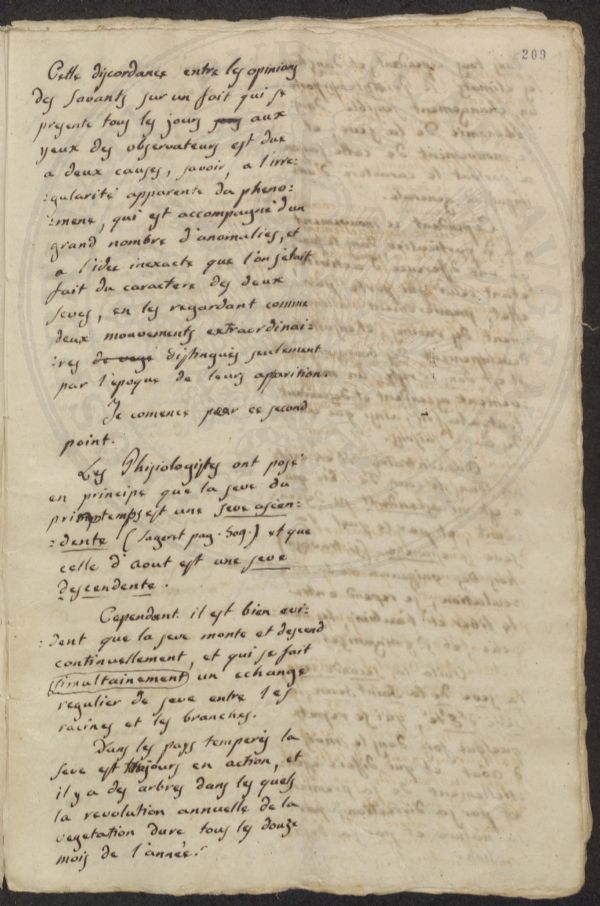 209
Cette discordance entre les opinions
des savants sur un fait qui se
presente tous les jours aux
yeux des observateurs est due
a deux causes, savoir, a l'irre-
:gularité apparente du pheno:
:mene, qui est accompagné d'un
grand nombre d'anomalies, et
a l'idée inexacte que l'on s'etait
fait du caractere des deux
seves, en les regardant comme
deux mouvements extraordinai:
:res distingués seulement
par l'epoque de leurs apparition.
Je comence par ce second
point.
Les Phisiologistes ont posé
en principe que la seve du
printemps est une seve ascen:
:dente (Sageret pag. 309.) et que
celle d'Aout est une seve
descendente.
Cependant il est bien evi:
:dent que la seve monte et descend
continuellement, et qui se fait
simultainement un echange
regulier de seve entre les
racines et les branches.
Dans les pays temperés la
seve est toujours en action, et
il y a des arbres dans les quels
la revolution annuelle de la
vegetation dure tous les douze
mois de l'année.